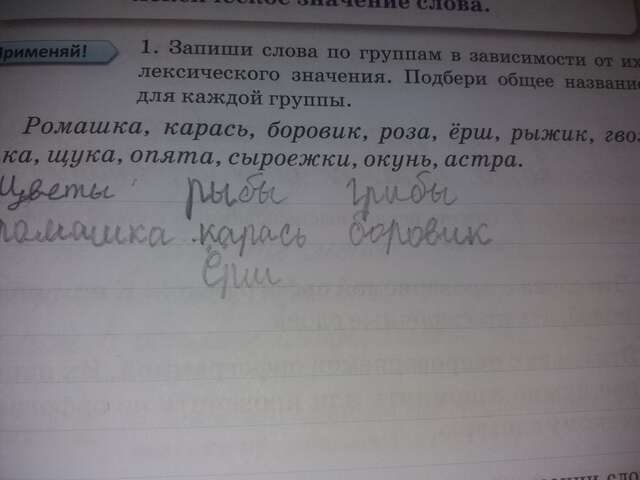 лексическое значение слова.
Применяй!
1. Запиши слова по группам в зависимости от их
лексического значения. Подбери общее название
для каждой группы.
Ромашка, карась, боровик, роза, ёрш, рыжик, гвоз
ка, щука, опята, сыроежки, окунь, астра.
Цветы рыбы грибы
ромашка карась боровик
Ёрш